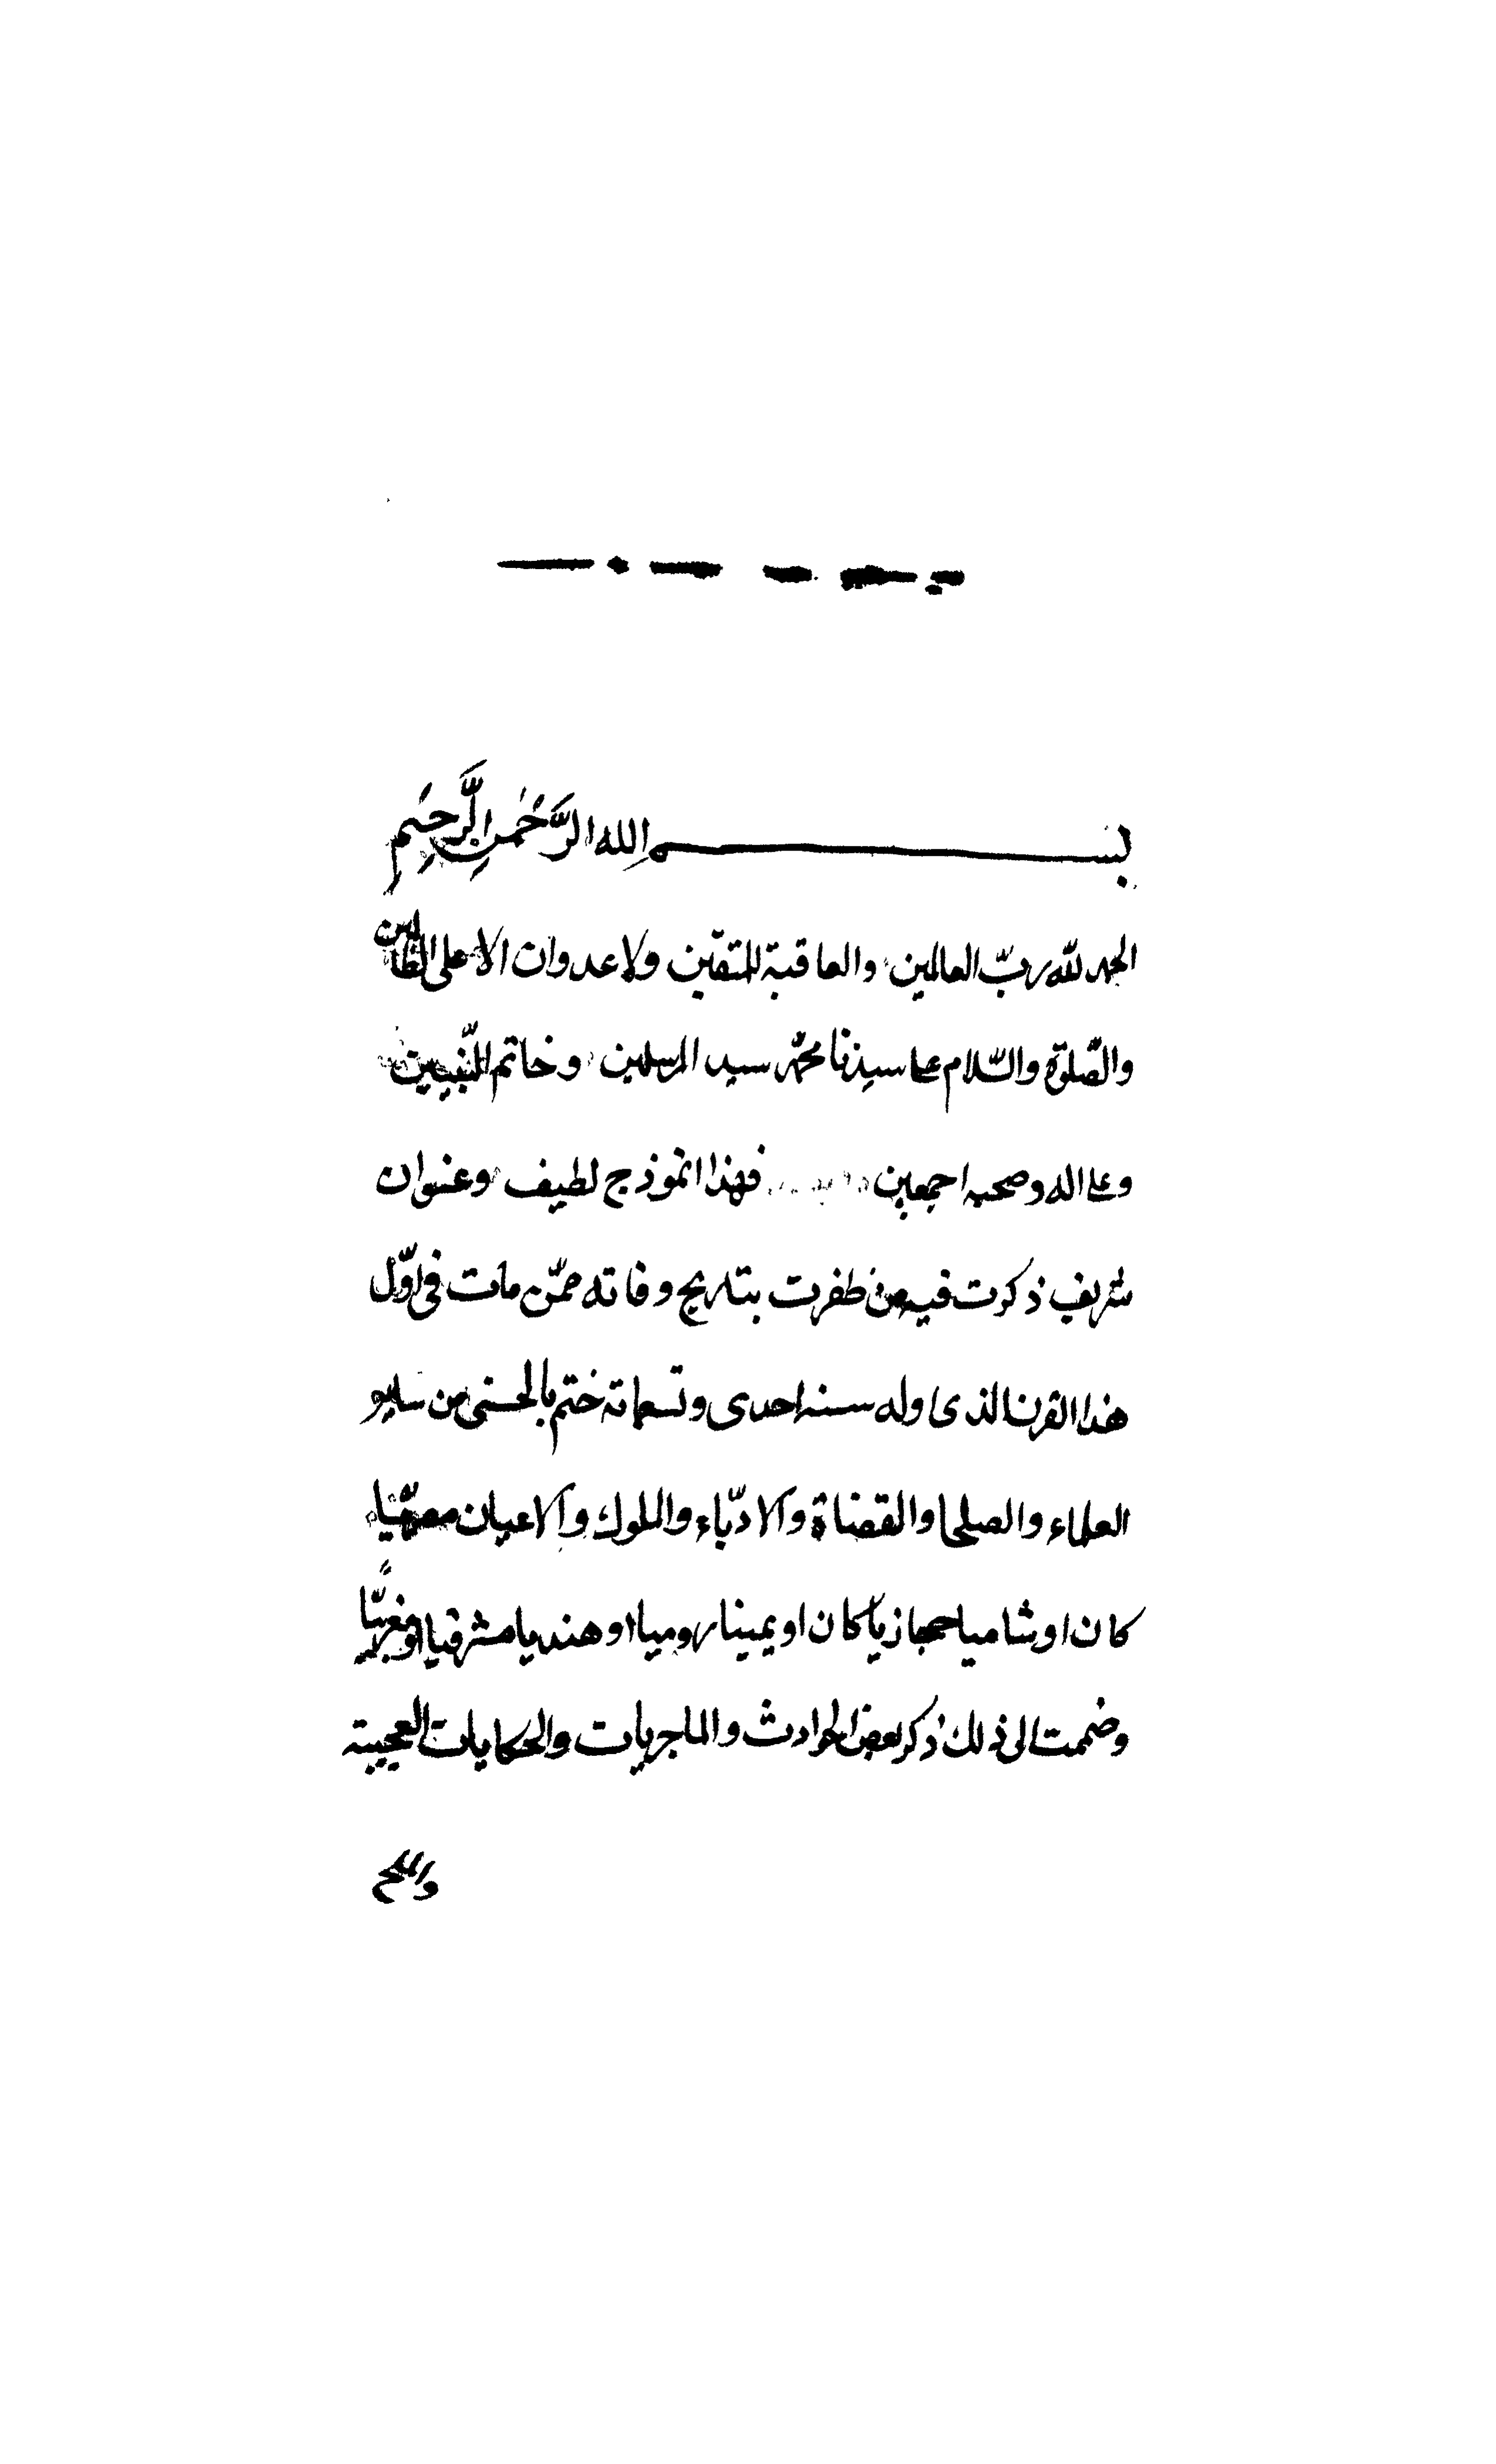 بسم الله الرَّحْمٰنِ الرَّحِيْمِ
الحمد لله ربّ العالمين والعاقبة للمتقين ولا عدوان الا على الظالمين
والصّلوة والسّلام على سيدنا محمّد سيد المرسلين وخاتم النّبيين
وعلى اله وصحبه اجمعين فهذا انموذج لطيف وعنوان
شريف ذكرت فيه من ظفرت بتاريخ وفاته ممّن مات فى اوّل
هذا القرن الذى اوله سنه احدى وتسعمائه ختم بالحسنى من ساير
العلماء والصلحا والقضاة والادبّاء والملوك والاعيان مصريّا
كان او شاميا حجازيا كان او يمينا روميا او هنديا مشرقيا او مغربيّاً
وضممت الى ذلك ذكر بعض الحوادث والماجريات والحكايات العجيبة
والملح